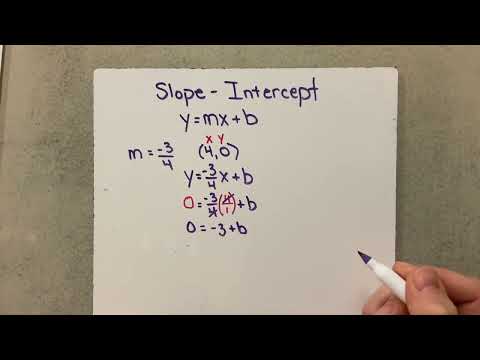 Slope - Intercept
y=mx+b
x y
m = -3/4 (4,0)
y = -3/4 x + b
0 = -3/4 (4/1) + b
0 = -3 + b